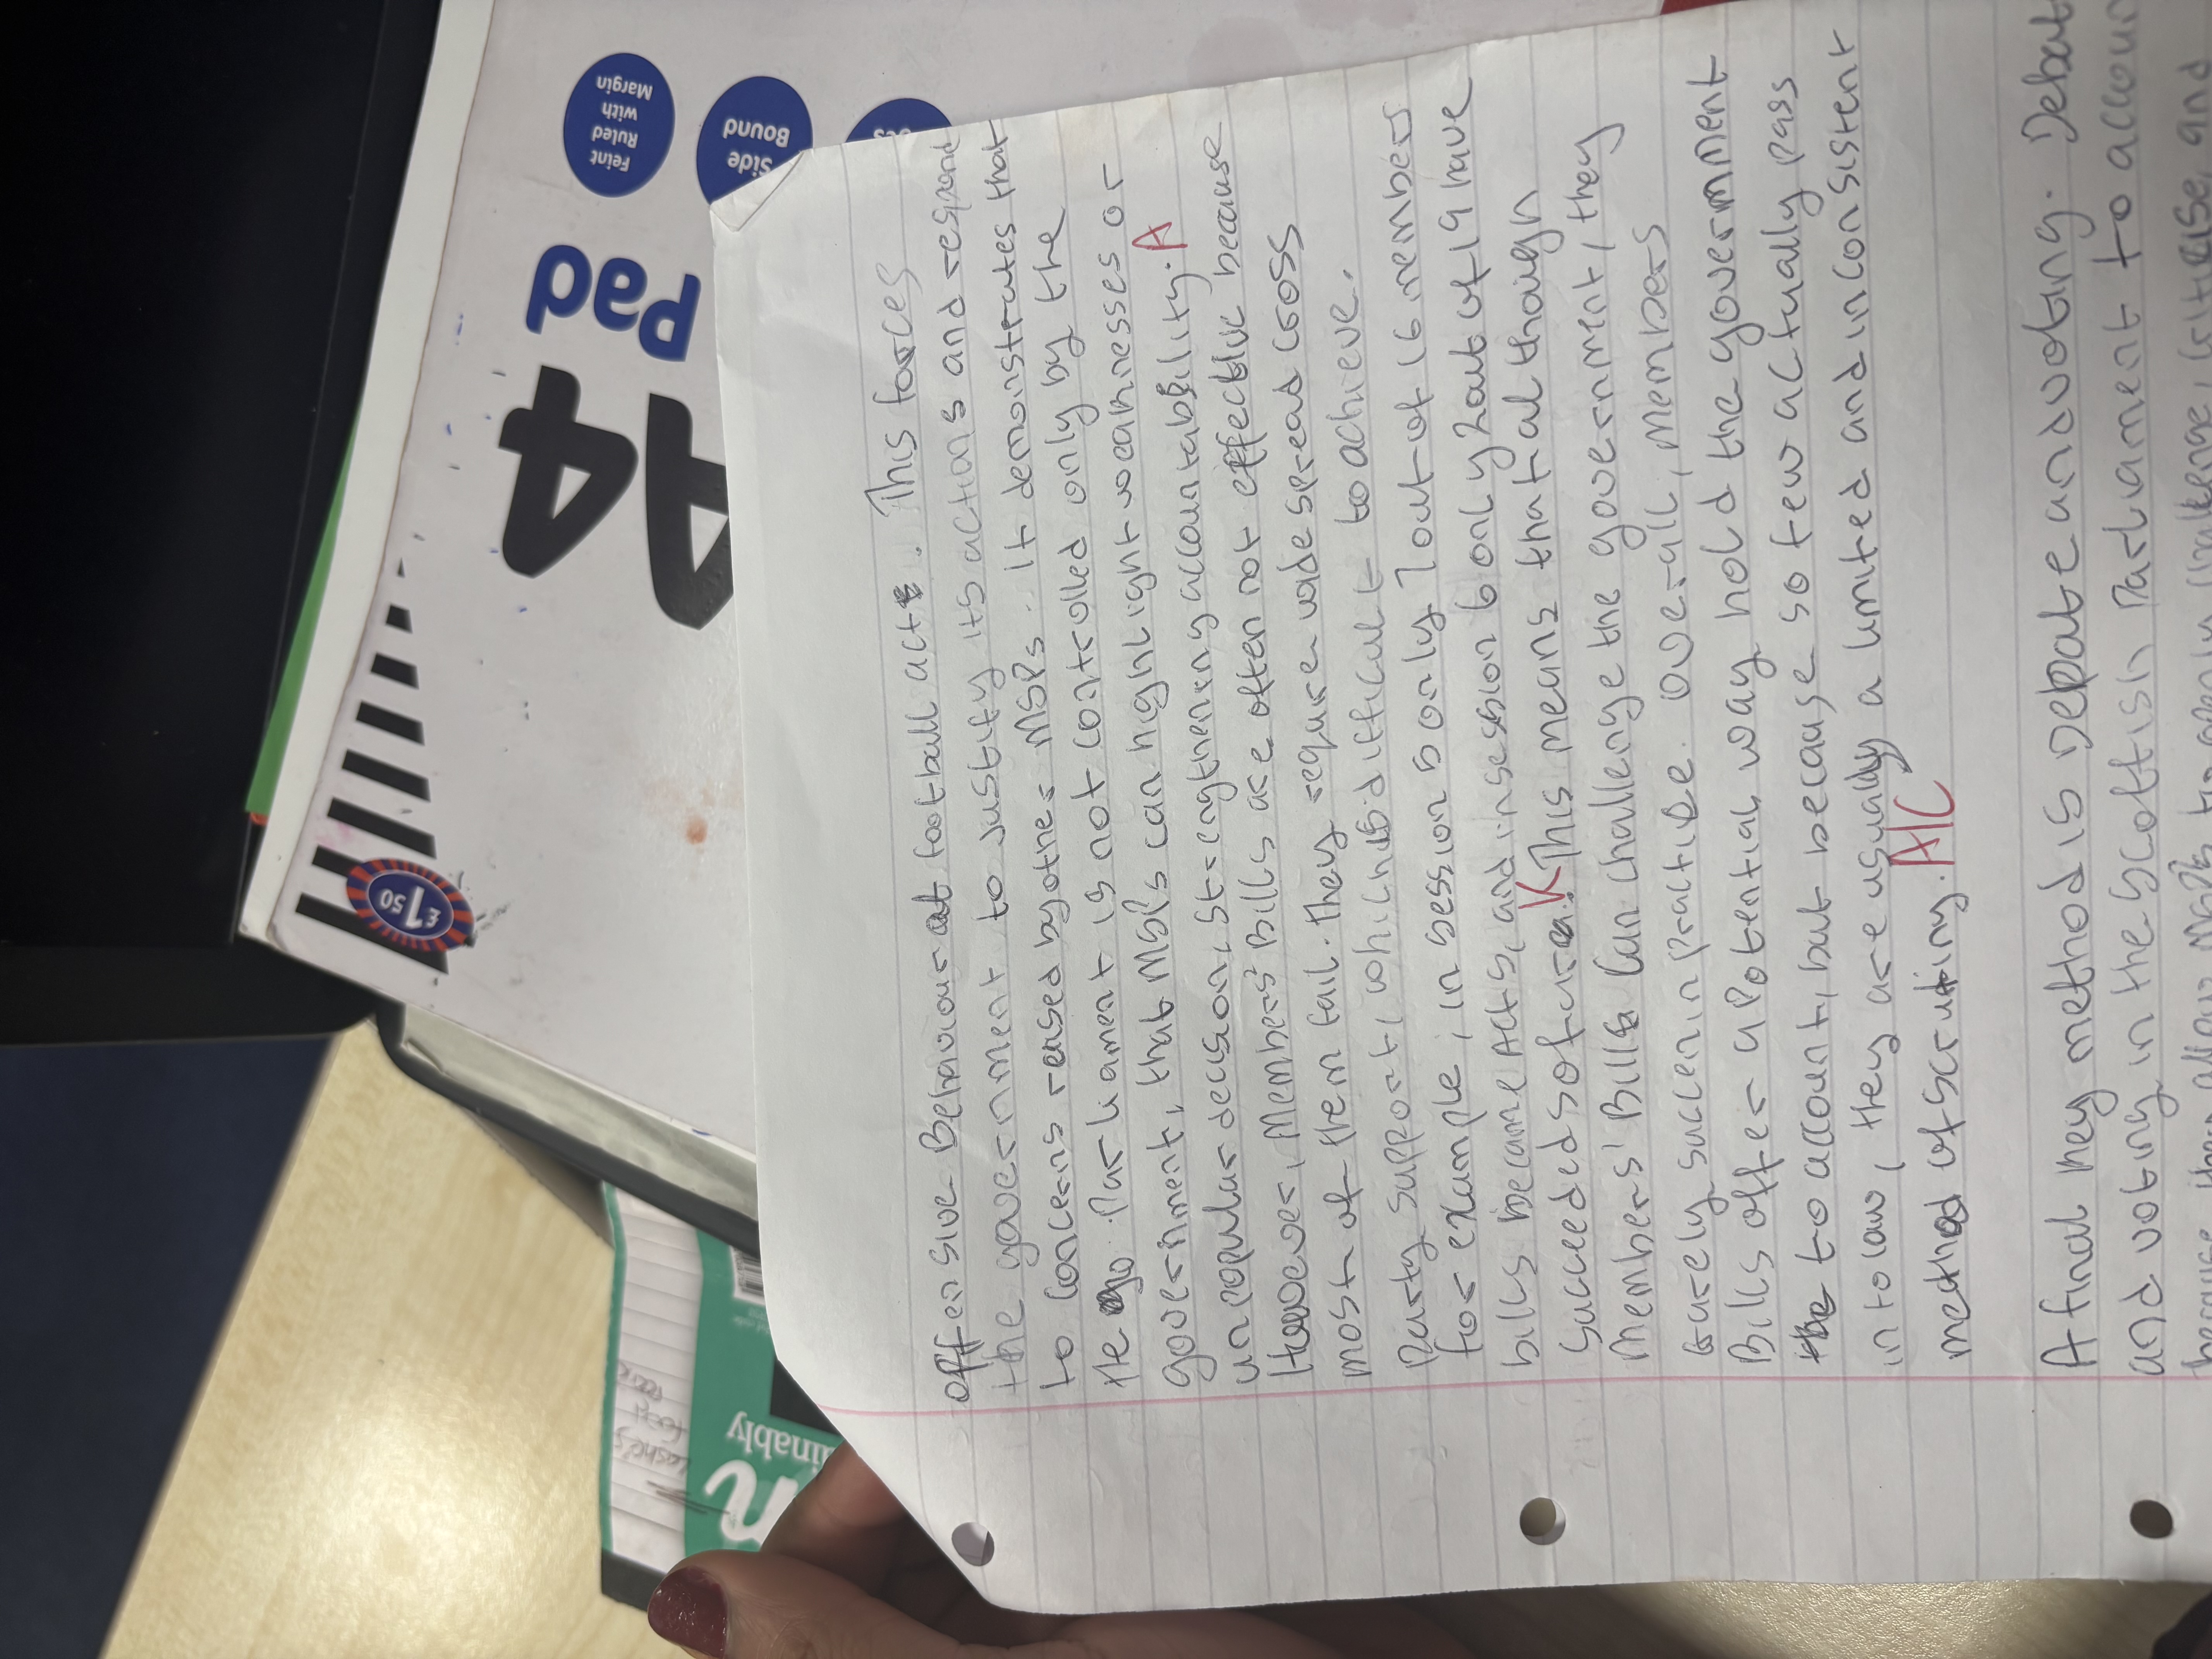 Feint
Ruled
with
Margin
Side
Bound
A4
Pad
£1.50
offensive Behaviour at football act. This forces
the government to justify its actions and respond
to concerns reased by other MSPs. It demonstrates that
the Parliament is not controlled only by the
government, that MSPs can highlight weaknesses or
unpopular decision, strengthening accountability. A
However, Members' Bills are often not effective because
most of them fail. they require wide spread cross
Party support, which is difficult to achieve.
for example, in session 5 only 7 out of 16 members
bills became Acts, and in session 6 only 2 out of 19 have
succeeded so fur. K This means that al though
Members' Bills can challenge the government, they
rarely succeen in practice. overall, members
Bills offer a potential way hold the government
to account, but because so few actually pass
into law, they are usually a limited and inconsistent
method of scrutiny. A/C
A final key method is Debate and voting. Debate
and voting in the scottish Parliament to accoun
because they allow MSPs to
and